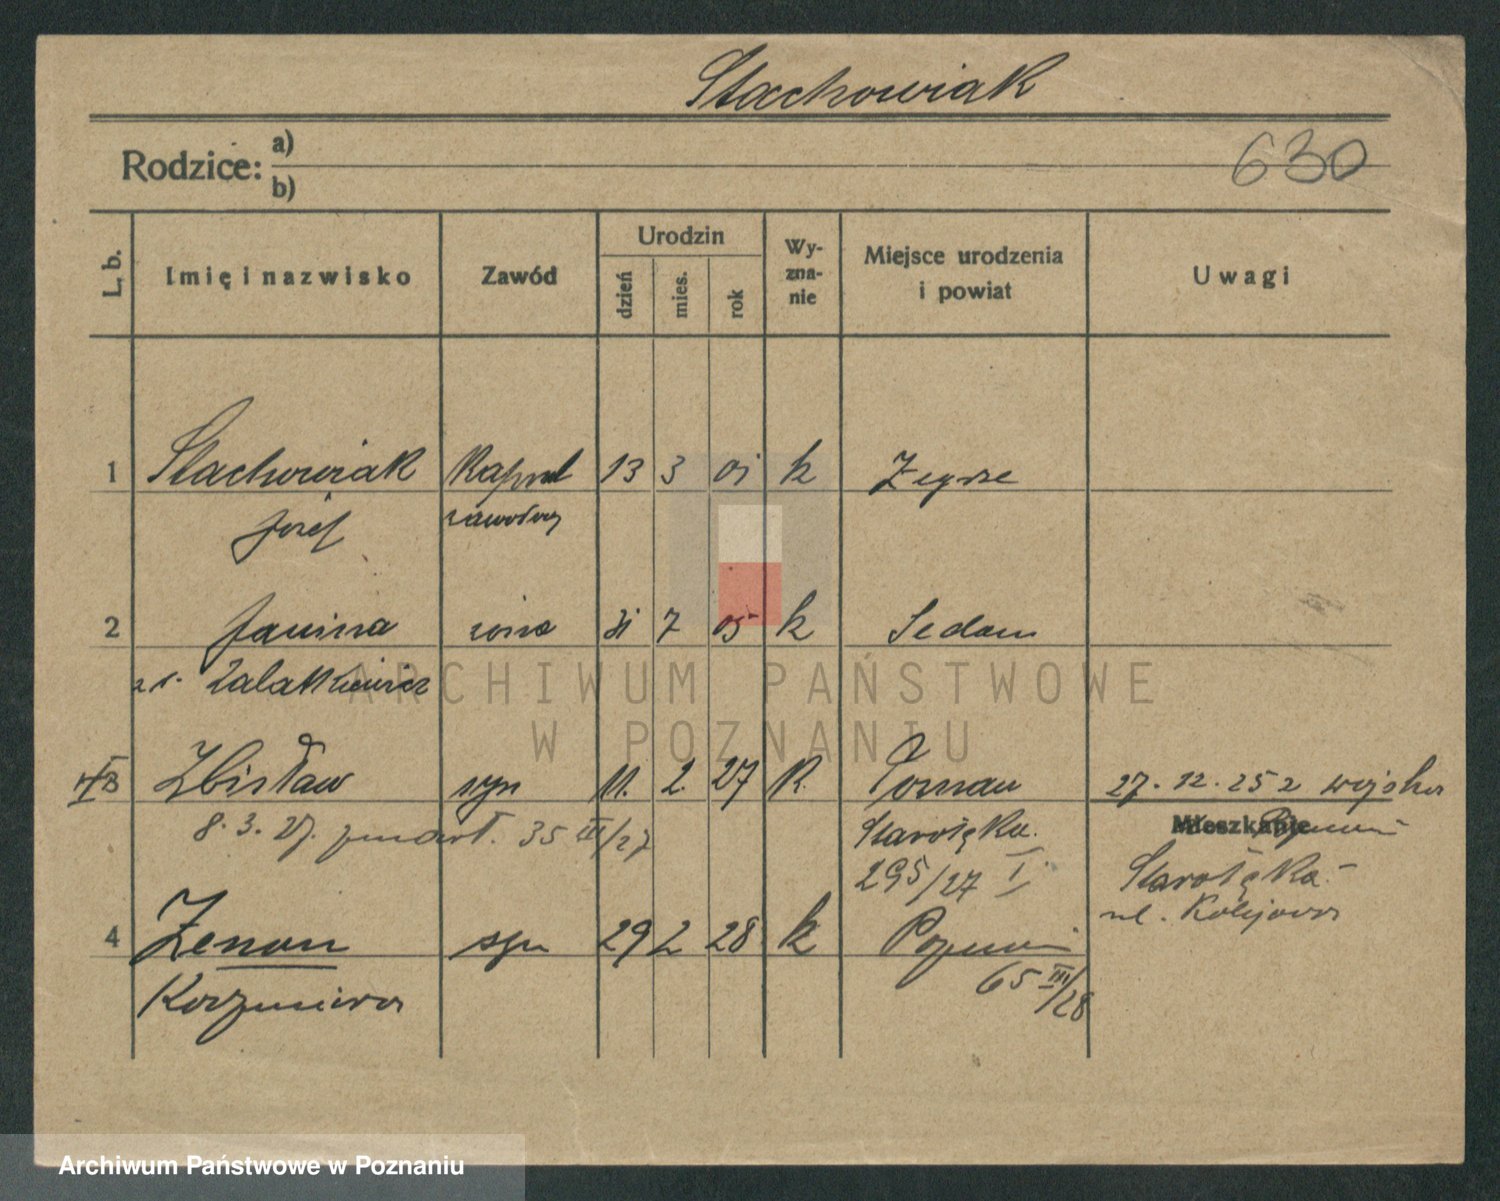 Stachowiak
Rodzice: a)
b)
630
L. b.
Imię i nazwisko
Zawód
Urodzin
dzień
mies.
rok
Wy-
zna-
nie
Miejsce urodzenia
i powiat
Uwagi
1 Stachowiak Kapral 13 3 01 k Zegrze
Józef zawodowy
2 Janina żona 31 7 05 k Sedan
z d.
3 Zbisław syn 11. 2. 27 k. Poznań 27. 12. 25 z wojska
8. 3. 27. zmarł. 35 III/27 Starołęka. Mieszkanie Poznań
295/27 I. Starołęka
ul. Kolejowa
4 Zenon syn 29 2 28 k Poznań
Kazimierz 65 III/28
ARCHIWUM PAŃSTWOWE
W POZNANIU
Archiwum Państwowe w Poznaniu